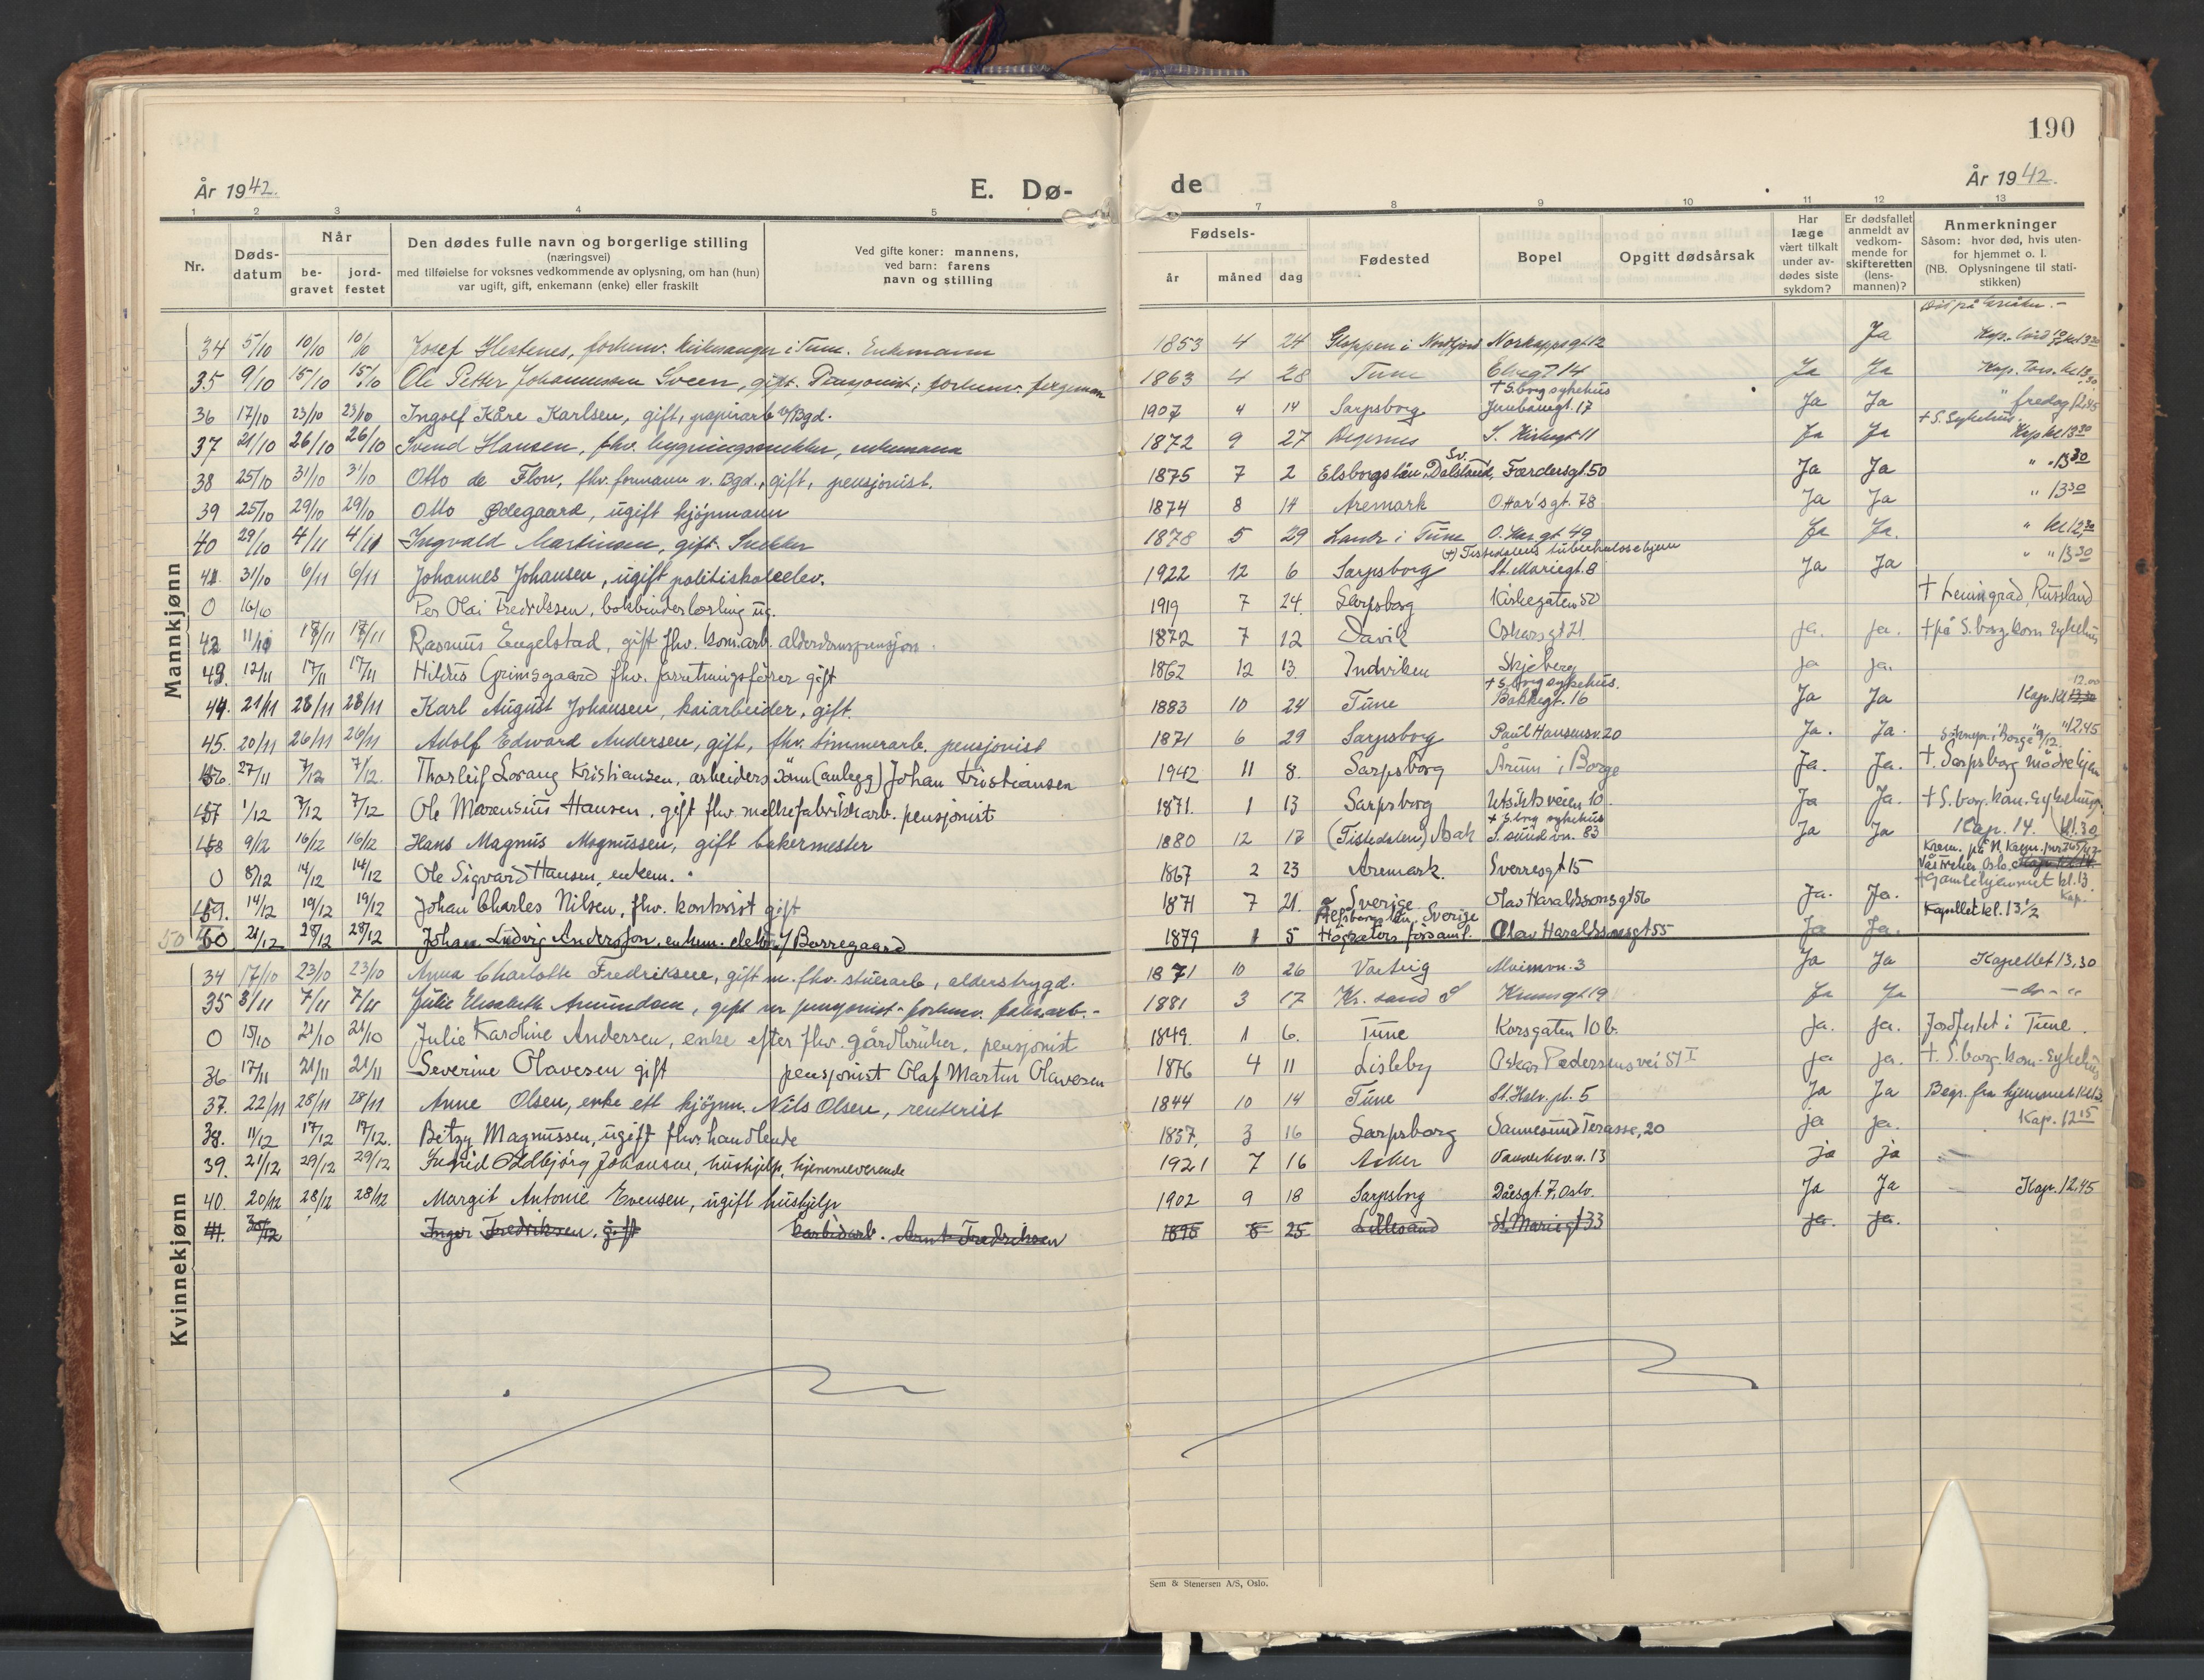 190
År 1942.
E. Dø-
de
År 1942.
1 2 3 4 5 7 8 9 10 11 12 13
Nr.
Døds-
datum
Når
be-
gravet
jord-
festet
Den dødes fulle navn og borgerlige stilling
(næringsvei)
med tilføielse for voksnes vedkommende av oplysning, om han (hun)
var ugift, gift, enkemann (enke) eller fraskilt
Ved gifte koner: mannens,
ved barn: farens
navn og stilling
Fødsels-
år måned dag
Fødested
Bopel
Opgitt dødsårsak
Har
læge
vært tilkalt
under av-
dødes siste
sykdom?
Er dødsfallet
anmeldt av
vedkom-
mende for
skifteretten
(lens-
mannen)?
Anmerkninger
Såsom: hvor død, hvis uten-
for hjemmet o. l.
(NB. Oplysningene til stati-
stikken)
Mannkjønn
34 5/10 10/10 10/10 Josef Hestenes, forhenv. kirkesanger i Tune. Enkemann 1853 4 24 Gloppen i Nordfjord Norkappsgt 12 Ja
35 9/10 15/10 15/10 Ole Petter Johannessen Sveen, gift. Pensjonist; forhenv. fergeman 1863 4 28 Tune Elvegt 14 Ja Ja
36 17/10 23/10 23/10 Ingolf Kåre Karlsen, gift, papirarb v/Bgd. 1907 4 14 Sarpsborg + S.borg sykehus Jernbanegt. 17 Ja Ja " fredag 12,45
37 21/10 26/10 26/10 Svend Hansen, fhv. bygningssnekker, enkemann 1872 9 27 Degernes S. Kirkegt 11 Ja Ja + S. Sykehus Kap kl 13 30
38 25/10 31/10 31/10 Otto de Flon, fhv. formann v. Bgd., gift, pensjonist. 1875 7 2 Elsborgs län, Dalsland, Sv. Færdersgt. 50 Ja Ja " - 13 30
39 25/10 29/10 29/10 Otto Ødegaard, ugift kjøpmann 1874 8 14 Aremark O. Har's gt. 78 Ja Ja " 13 30
40 29/10 4/11 4/11 Ingvald Martinsen, gift. Snekker 1878 5 29 Lande i Tune O. Har. gt 49 Ja Ja. " kl 12,30
41 31/10 6/11 6/11 Johannes Johansen, ugift politiskoleelev. 1922 12 6 Sarpsborg (+) Tistedalens tuberkulosehjem St. Mariegt. 8 Ja Ja " " 13 30
0 16/10 Per Olai Fredriksen, bokbinderlærling ug. 1919 7 24. Sarpsborg Kirkegaten 50 + Leningrad, Russland
42 11/11 17/11 17/11 Rasmus Engelstad, gift fhv. kom.arb. alderdomspensjon. 1872 7 12 Davik Oskarsgt 21 ja. ja. + på S.borg kom. Sykehus
43. 12/11 17/11 17/11 Hildus Grimsgaard fhv. forretningsfører gift 1862 12 13. Indviken Skjeberg ja ja.
44. 21/11 28/11 28/11 Karl August Johansen, kaiarbeider, gift. 1883 10 24 Tune + S.borg sykehus. Bakkegt. 16 Ja Ja Kap. kl 13.30 12.00
45. 20/11 26/11 26/11 Adolf Edward Andersen, gift, fhv. tømmerarb. pensjonist 1871 6 29 Sarpsborg Paul Hansensv. 20 Ja. Ja. " 12,45
46. 27/11 7/12 7/12. Thorleif Lorang Kristiansen, arbeiders sønn (anlegg) Johan Kristiansen 1942 11 8. Sarpsborg Årum i Borge Ja. Ja. +. Sarpsborg mødrehjem
47 1/12 7/12 7/12 Ole Marensius Hansen, gift fhv melkefabrikkarb. pensjonist 1871. 1 13 Sarpsborg Utsiktsveien 10. Ja Ja. + S.borg. kom. Sykehus.
48 9/12 16/12 16/12 Hans Magnus Magnussen, gift bakermester 1880 12 17 (Tistedalen) Asak + S.borg sykehus S. sund vn. 83 Ja Ja Kap. 14. kl.30
0 8/12 14/12 14/12 Ole Sigvard Hansen, enkem. 1867 2 23 Aremark. Sverresgt 15
49. 14/12 19/12 19/12 Johan Charles Nilsen, fhv. kontorist gift 1871 7 21. Sverige Olav Haraldssonsgt 56 Ja. Ja. + Gamlehjemmet kl. 13 Kap.
50 21/12 28/12 28/12 Johan Ludvig Andersson, enkem. elektr. v/ Borregaard 1879 1 5 Elfsborgs län, Sverige Högsäters församl. Olav Haraldssonsgt 55 Ja Ja. Kapellet kl. 13 1/2
Kvinnekjønn
34 17/10 23/10 23/10 Anna Charlotte Fredriksen, gift m. fhv. stuerarb, alderstrygd. 1871 10 26 Varteig Alveimvn. 3 Ja Ja Kapellet 13,30
35 3/11 7/11 7/11 Julie Elisabeth Amundsen, gift m pensjonist - forhenv. fabr.arb. - 1881 3 17 Kr. sand S Krumgt 19 Ja Ja
0 15/10 21/10 21/10 Julie Karoline Andersen, enke efter fhv. gårdbruker, pensjonist 1849. 1 6. Tune Korsgaten 10 b. ja. ja. Jordfestet i Tune.
36 17/11 21/11 21/11 Severine Olavesen gift pensjonist Olaf Martin Olavesen 1876 4 11 Lisleby Oskar Pedersens vei 51 I ja ja. +. S.borg kom. Sykehus
37. 22/11 28/11 28/11 Anne Olsen, enke ett kjøpm. Nils Olsen, renterist 1844 10 14 Tune St. Halv. pl. 5 Ja Ja Begr. fra hjemmet kl 13
38. 11/12 17/12 17/12. Betzy Magnussen, ugift fhv. handlende 1857. 3 16 Sarpsborg Sannesund Terasse, 20 ja ja. Kap. 12 15
39. 21/12 29/12 29/12 Ingrid Oddbjörg Johansen, hushjelp, hjemmeværende 1921 7 16 Asker ja ja
40. 20/12 28/12 28/12 Margit Antonie Evensen, ugift hushjelp 1902 9 18 Sarpsborg Daasgt. 7, Oslo. Ja Ja Kap. 12.45
41. 30/12 Inger Fredriksen, gift karbidarb. Arnt Fredriksen 1898 8 25 Lillesand St. Mariegt 33 Ja. Ja.
Sem & Stenersen A/S, Oslo.